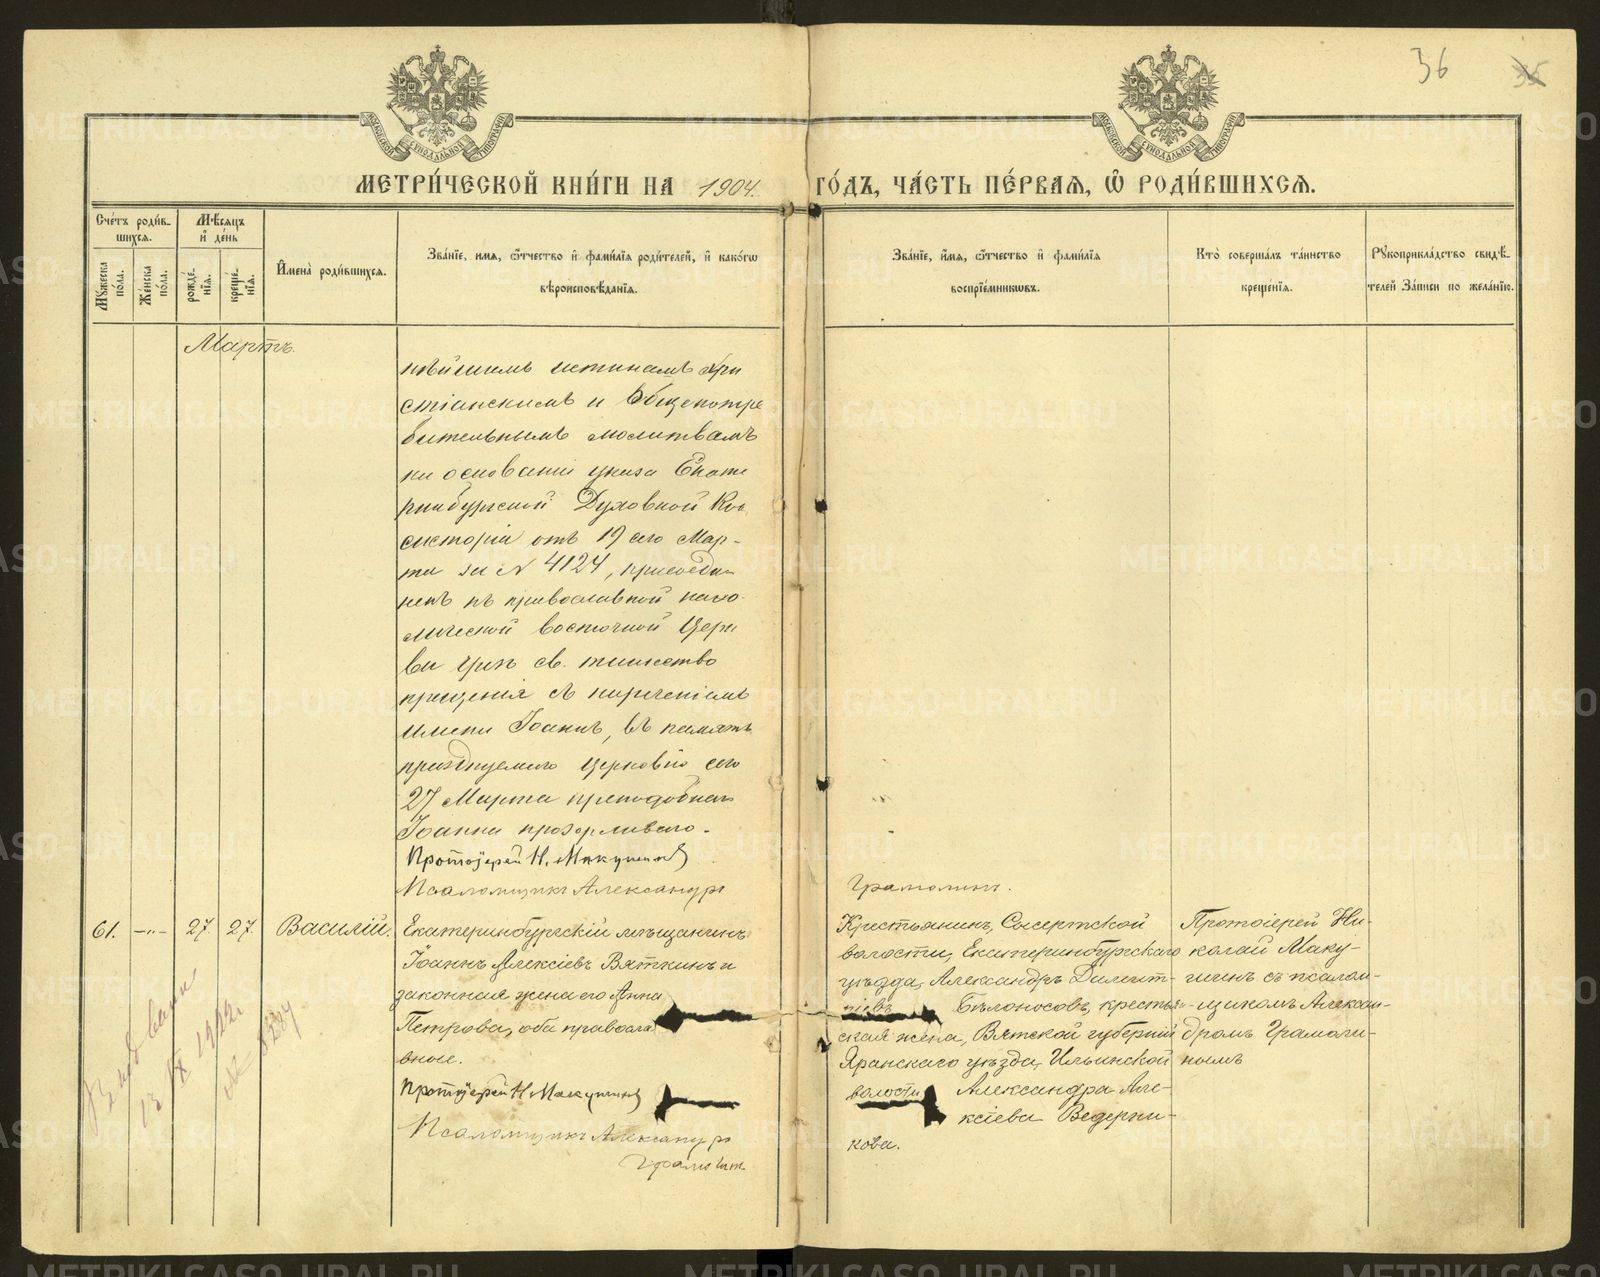 36
35
МОСКОВСКОЙ СУНОДАЛЬНОЙ ТИПОГРАФІИ
МОСКОВСКОЙ СУНОДАЛЬНОЙ ТИПОГРАФІИ
МЕТРИ́ЧЕСКОЙ КНИ́ГИ НА 1904. ГО́ДЪ, ЧА́СТЬ ПЕ́РВАЯ, Ѿ РОДИ́ВШИХСЯ.
Сче́тъ роди́в-
шихся.
Мѣ́сяцъ
и҆ де́нь
Му́жеска по́ла.
Же́нска по́ла.
рожде́нїѧ.
креще́нїѧ.
И҆мена̀ роди́вшихсѧ.
Зва́нїе, и҆мѧ, ѻ҆́тчество и҆ фами́лїѧ роди́телей, и҆ како́гѡ
вѣроисповѣ́данїѧ.
Зва́нїе, и҆́мѧ, ѻ҆́тчество и҆ фами́лїѧ
воспрїе́мникѡвъ.
Кто̀ соверша́лъ та́инство
креще́нїѧ.
Рꙋкоприкла́дство свидѣ́-
телей за́писи по жела́нїю.
Мартъ.
нѣйшимъ истинамъ хри
стіанскимъ и общеупотре
бительнымъ молитвамъ
на основаніи указа Екате
ринбургской Духовной Кон
систоріи отъ 19 сего Мар-
та за № 4124, присоеди
ненъ къ православной каѳо-
лической восточной Церк
ви чрезъ св. таинство
крещенія съ нареченіемъ
имени Іоаннъ, въ память
празднуемаго церковію сего
27 Марта преподобнаго
Іоанна прозорливаго.
Протоіерей Н. Макушинъ
Псаломщикъ Александръ
Грамолинъ.
61. -"- 27 27 Василій.
Екатеринбургскій мѣщанинъ
Іоаннъ Алексіевъ Вяткинъ и
законная жена его Анна
Петрова, оба правосла
вные.
Протоіерей Н. Макушинъ
Псаломщикъ Александръ
Грамолин.
Крестьянинъ, Сысертской
волости, Екатеринбургскаго
уѣзда, Александръ Димит-
ріевъ Бѣлоносовъ, крестьян-
ская жена, Вятской губерніи
Яранскаго уѣзда, Ильинской
волости Александра Але-
ксіева Ведерни-
кова.
Протоіерей Ни-
колай Маку-
шинъ съ псалом-
щикомъ Алексан-
дромъ Грамоли-
нымъ
13 IX 1922г.
METRIKI.GASO-URAL.RU